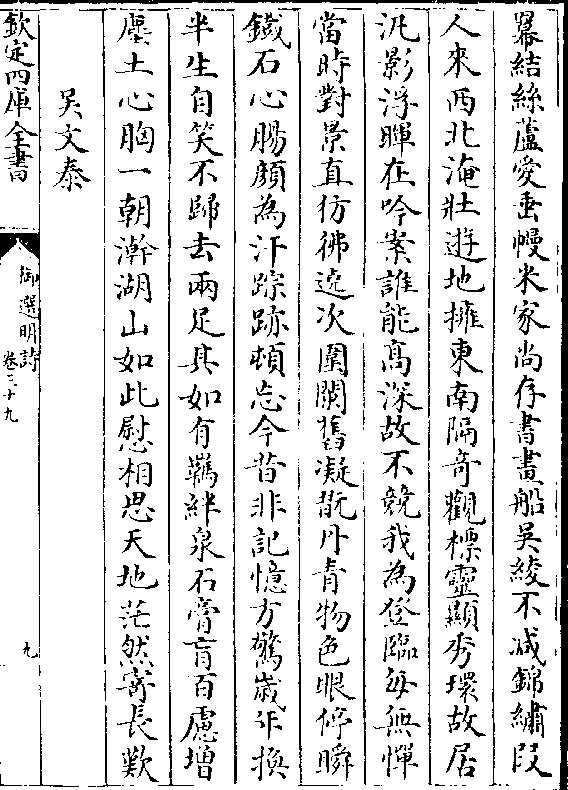 羃結絲蘆愛垂幔米家尚存書畫船吳綾不減錦繡段
人來西北淹壯遊地擁東南隔奇觀標靈顯秀環故居
汎影浮暉在吟案誰能髙深故不競我為登臨每無憚
當時對景直彷彿逺次圍闗舊凝翫丹青物色眼停瞬
鐵石心腸顔為汗踪跡頓忘今昔非記憶方驚歲乍換
半生自笑不歸去兩足具如有羈絆泉石膏肓百慮增
塵土心胸一朝澣湖山如此慰相思天地茫然寄長歎
吴文泰
欽定四庫全書
御選明詩
卷三十九
九